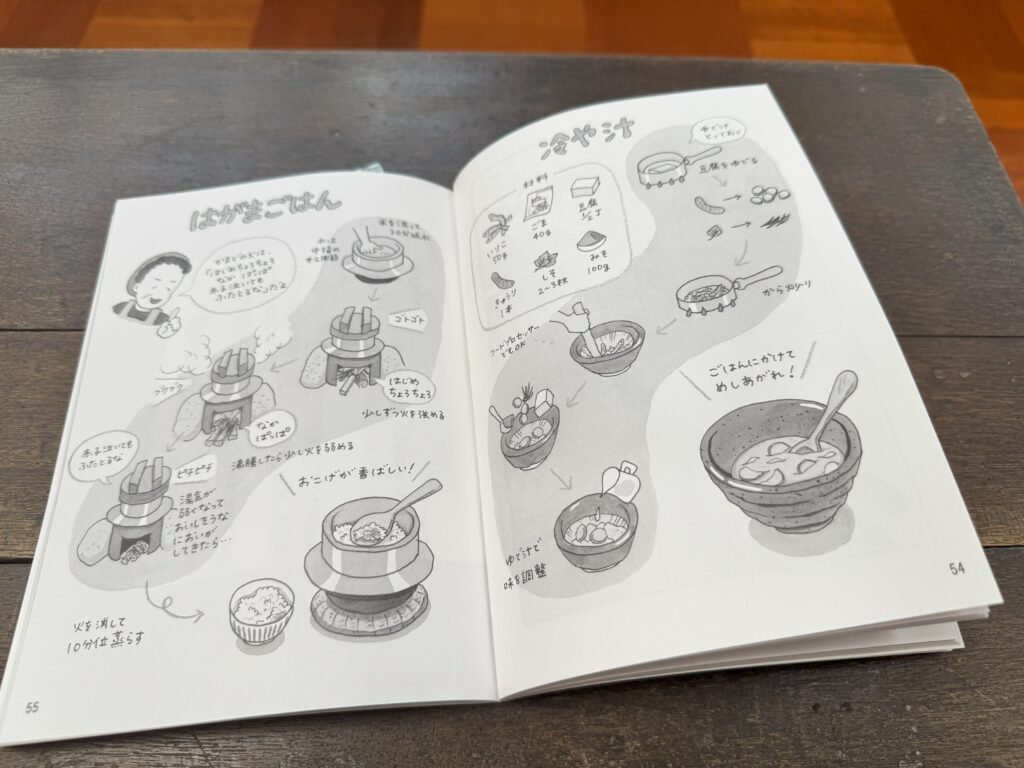 冷や汁
材料
いりこ
50g
ごま
40g
豆腐
1/2丁
きゅうり
1本
しそ
2~3枚
みそ
100g
とっておく
豆腐をゆでる
から炒り
フードプロセッサー
でもOK
ゆで汁で
味を調整
ごはんにかけて
めしあがれ!
54
はがまごはん
かまどの火は、
「はじめちょろちょろ
なか ぱっぱ
赤子泣いても
ふたとるな」だよ
米を洗って
30分浸水
水は
中指の
関節
ゴトゴト
はじめ
ちょろちょろ
少しずつ火を強める
ブクブク
なか
ぱっぱ
沸騰したら少し火を弱める
赤子泣いても
ふたとるな
ピチピチ
湯気が
弱くなって
おいしそうな
においが
してきたら…
火を消して
10分位蒸らす
おこげが香ばしい!
55